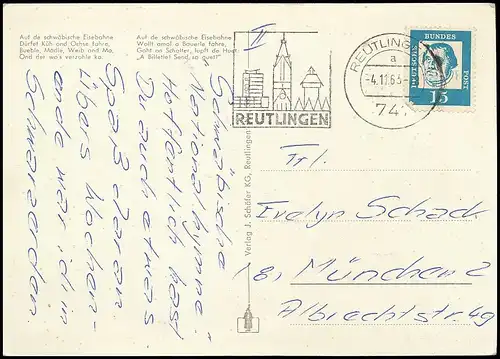 Auf de schwäbische Eisebahne
Dürfet Küh und Ochse fahra,
Bueble, Mädle, Weib und Ma,
Ond der wo's verzahle ka.
Auf de schwäbische Eisebahne
Wollt amol a Bäuerle fahre,
Goht an Schalter, lupft de Hoat:
„A Billetle! Send so guet!"
II
REUTLINGEN
REUTLINGEN
a
-4.11.63-
741
DEUTSCHE
BUNDES
POST
15
„Schwäbische
Nationalhymne"
Hoffentlich hast
Du auch etwas
Spaß daran.
Übers Wochen-
ende war ich in
Verlag J. Schäfer KG, Reutlingen
Frl.
Evelyn Schack
(8) München 2
Albrechtstr. 49